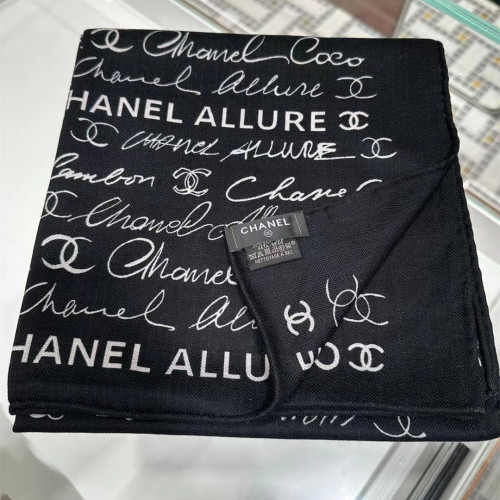 Chanel Coco
Chanel Allure
HANEL ALLURE
CHANEL ALLURE
Cambon Chanel
Chanel All
Chanel
Chanel All
HANEL ALLU CO
CHANEL
NETTOYAGE A SEC